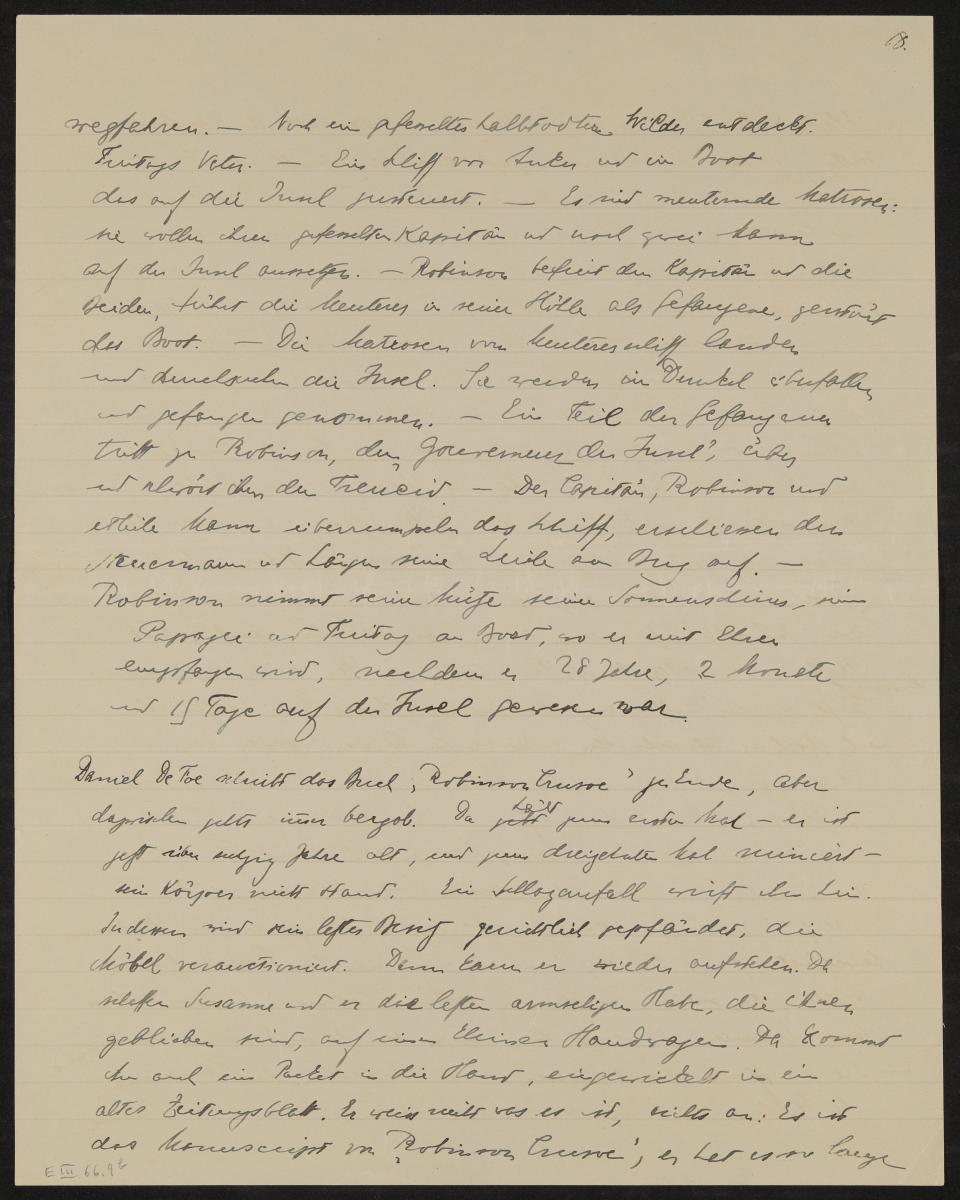 18.
wegfahren. — Noch ein gefesselter halbtodter Wilder entdeckt.
Freitags Vater. — Ein Schiff vor Anker und ein Boot
das auf die Insel zusteuert. — Es sind meuternde Matrosen:
sie wollen ihren gefesselten Kapitän und noch zwei Mann
auf der Insel aussetzen. — Robinson befreit den Kapitän und die
Beiden, führt die Meuterer in seine Höhle als Gefangene, zerstört
das Boot. — Die Matrosen vom Meutererschiff landen
und durchsuchen die Insel. Sie werden im Dunkel überfallen
und gefangen genommen. — Ein Teil der Gefangenen
tritt zu Robinson, dem „Gouverneur der Insel", über
und schwört ihm den Treueid. — Der Capitän, Robinson und
etliche Mann überrumpeln das Schiff, erschiessen den
Steuermann und hängen seine Leiche am Bug auf. —
Robinson nimmt seine Mütze seinen Sonnenschirm, seinen
Papagei und Freitag an Bord, wo er mit Ehren
empfangen wird, nachdem er 28 Jahre, 2 Monate
und 19 Tage auf der Insel gewesen war.
Daniel De Foe schreibt das Buch „Robinson Crusoe" zu Ende, aber
dazwischen gehts immer bergab. Da hält zum ersten Mal — er ist
jetzt über sechzig Jahre alt, und zum dreizehnten Mal ruiniert —
sein Körper nicht stand. Ein Schlaganfall wirft ihn hin.
Indessen wird sein letzter Besitz gerichtlich gepfändet, die
Möbel verauctioniert. Dann kann er wieder aufstehen. Da
schaffen Susanne und er die letzten armseligen Habe, die ihnen
geblieben sind, auf einen kleinen Handwagen. Da kommt
ihm auch ein Packet in die Hand, eingewickelt in ein
altes Zeitungsblatt. Er weiss nicht was es ist, siehts an: Es ist
das Manuscript von „Robinson Crusoe", er hat es so lange
E III 66.9b